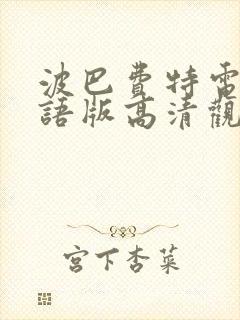 波巴費特電
語版高清觀
宮下杏菜